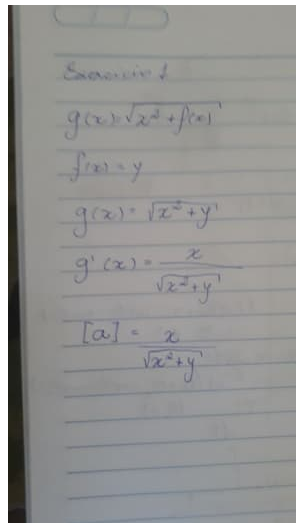 Exercice 1
g(x)=√(x²+f(x))
f(x) = y
g(x) = √(x²+y)
g'(x) = x/√(x²+y)
[a] = x/√(x²+y)